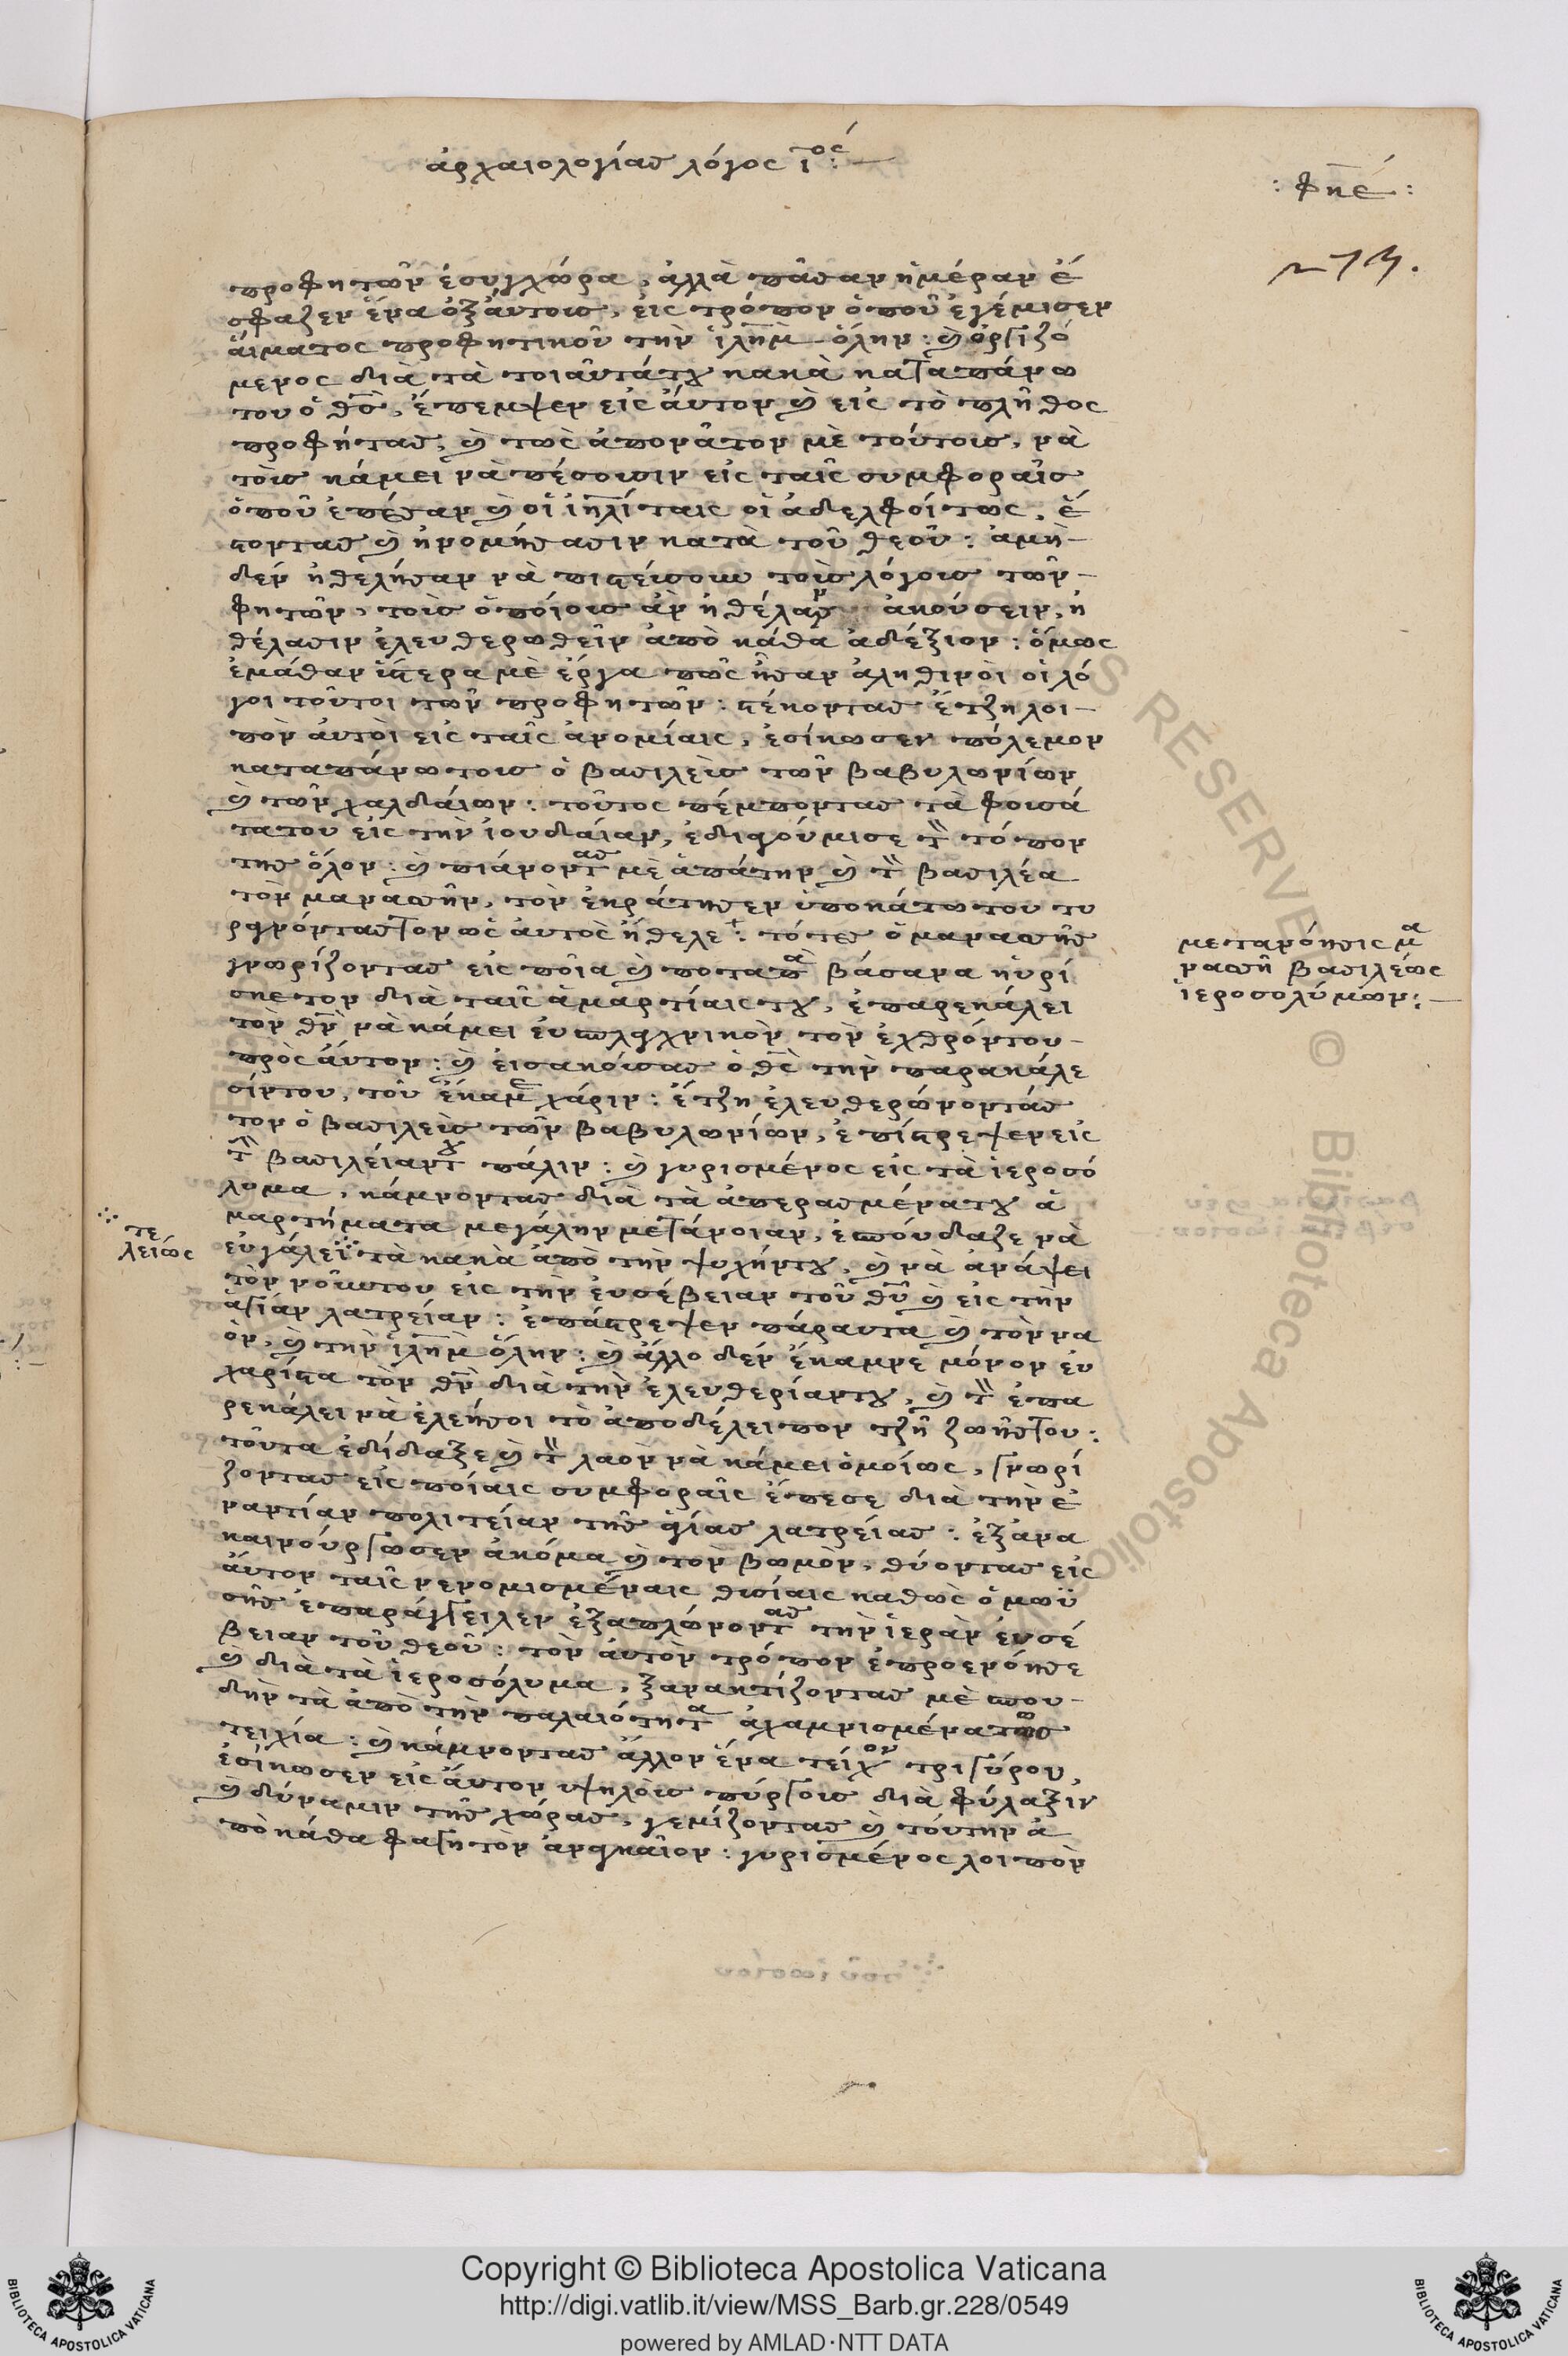 ἀρχαιολογίας λόγος ι^ος:
: φηέ :
273.
προφητῶν ἐσυγχώρα, ἀλλὰ πᾶσαν ἡμέραν ἔ
σφαζεν ἕνα ὀξἄυτους, εἰς τρόπον ὁποῦ ἐγέμισεν
ἅιματος προφητικοῦ τὴν ἱλημ ὅλην: ϗ ὀργιζό
μενος διὰ τὰ τοιαῦτάτȣ κακὰ καταπάνω
του ὁ θς, ἔπεμψεν εἰς ἄυτον ϗ εἰς τὸ πλῆθος
προφήτας, ϗ τῶς ἀπονᾶτον μὲ τούτους, νὰ
τοὺς κάμει νὰ πέσουσιν εἰς ταῖς συμφοραῖς
ὁποῦ ἐπέσαν ϗ οἱ ἰηλίταις οἱ ἀδελφοίτως, ἔ
στοντας ϗ ἠνομήσασιν κατὰ τοῦ θεοῦ: ἀμὴ
δὲν ἠθελήσαν νὰ πιστεύσουν τοὺς λόγους τῶν
φητῶν, τοὺς ὁποίους ἂν ἠθέλαν ἀκούσειν, ἠ
θέλασιν ἐλευθερωθεῖν ἀπὸ κάθα ἀδέξιον: ὅμως
ἐμάθαν ὕστερα μὲ ἔργα πῶς ἦσαν ἀληθινὸι οἱ λό
γοι τοῦτοι τῶν προφητῶν: στέκοντας ἔτζη λοι
πὸν ἀυτοὶ εἰς ταῖς ἀνομίαις, ἐσίκωσεν πόλεμον
καταπάνω τους ὁ βασιλεὺς τῶν βαβυλωνίων
ϗ τῶν χαλδάιων: τοῦτος πέμποντας τὰ φουσά
τατου εἰς τὴν ἰουδάιαν, ἐδιαγούμισε τὸν τόπον
της ὅλον: ϗ πιάνοντας μὲ ἀπάτην ϗ τὸν βασιλέα
τὸν μανασῆν, τὸν ἐκράτησεν ὑποκάτω του τυ
ραννόντας τον ὡς ἀυτὸς ἤθελε: τότες ὁ μανασῆς
γνωρίζοντας εἰς ποῖα ϗ ποταπὰ βάσανα ηὑρί
σκετον διὰ ταῖς ἁμαρτίαις τȣ, ἐπαρεκάλει
τὸν θν νὰ κάμει ἐυσπλαχνικὸν τὸν ἐχθρόντου
πρὸς ἄυτον: ϗ ἐισακούσας ὁ θς τὴν παρακάλε
σίντου, τοῦ ἔκαμε χάριν: ἔτζη ἐλευθερώνοντάς
τον ὁ βασιλεὺς τῶν βαβυλωνίων, ἐπίστρεψεν εἰς
τὴν βασιλείαντȣ πάλιν: ϗ γυρισμένος εἰς τὰ ἱεροσό
λυμα, κάμνοντας διὰ τὰ ἀπερασμένατȣ ἁ
μαρτήματα μεγάλην μετάνοιαν, ἐσπούδαζε νὰ
ἐυγάλει ⁘ τὰ κακὰ ἀπὸ τὴν ψυχήντȣ, ϗ νὰ ἀνάψει
τὸν νοῦντου εἰς τὴν ἐυσέβειαν τοῦ θυ ϗ εἰς τὴν
ἁγίαν λατρείαν: ἐπάστρεψεν πάραυτα ϗ τὸν να
ὸν, ϗ τὴν ἱλημ ὅλην: ϗ ἄλλο δὲν ἔκαμνε μόνον ἐυ
χαρίστα τὸν θν διὰ τὴν ἐλευθερίαντȣ, ϗ τὸν ἐπα
ρεκάλει νὰ ἐλεήσοι τὸ ἀποδέλειπον τζῆ ζωῆςτου:
τοῦτα ἐδίδαξε ϗ τὸν λαὸν νὰ κάμει ὁμοίως, γνωρί
ζοντας εἰς ποίαις συμφοραῖς ἔπεσε διὰ τὴν ἐ
ναντίαν πολιτείαν τῆς ἁγίας λατρείας: ἐξανα
καινούργωσεν ἀκόμα ϗ τὸν βωμὸν, θύοντας εἰς
ἄυτον ταῖς νενομισμέναις θυσίαις καθὼς ὁ μωϋ
σῆς ἐπαράγγειλεν ἐξαπλώνοντας τὴν ἱερὰν ἐυσέ
βειαν τοῦ θεοῦ: τὸν ἀυτὸν τρόπον ἐπροενόησε
ϗ διὰ τὰ ἱεροσόλυμα, ξανακτίζοντας μὲ σπου
δὴν τὰ ἀπὸ τὴν παλαιότητα ἀχαμνισμένατως
τειχία: ϗ κάμνοντας ἄλλον ἕνα τείχον τριγύρου,
ἐσίκωσεν εἰς ἄυτον ὑψηλοὺς πύργους διὰ φύλαξιν
ϗ δύναμιν τῆς χώρας, γεμίζοντας ϗ τούτην ἀ
πὸ κάθα φαγητὸν ἀναγκαῖον: γυρισμένος λοιπὸν
μετανόησις μα
νασῆ βασιλέως
ἱεροσολύμων:
⁘ τε
λείως
Copyright © Biblioteca Apostolica Vaticana
http://digi.vatlib.it/view/MSS_Barb.gr.228/0549
powered by AMLAD·NTT DATA
BIBLIOTECA APOSTOLICA VATICANA
BIBLIOTECA APOSTOLICA VATICANA